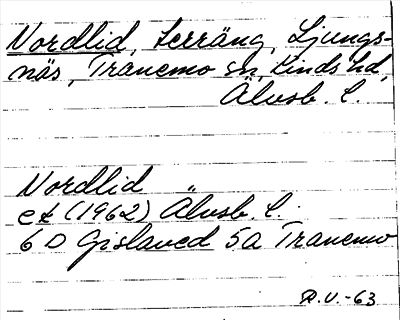 Nordlid, terräng, Ljungs-
näs, Tranemo sn, Kinds hd,
Älvsb. l.
Nordlid
ek (1962) Älvsb. l.
6 D Gislaved 5a Tranemo
R.U.-63